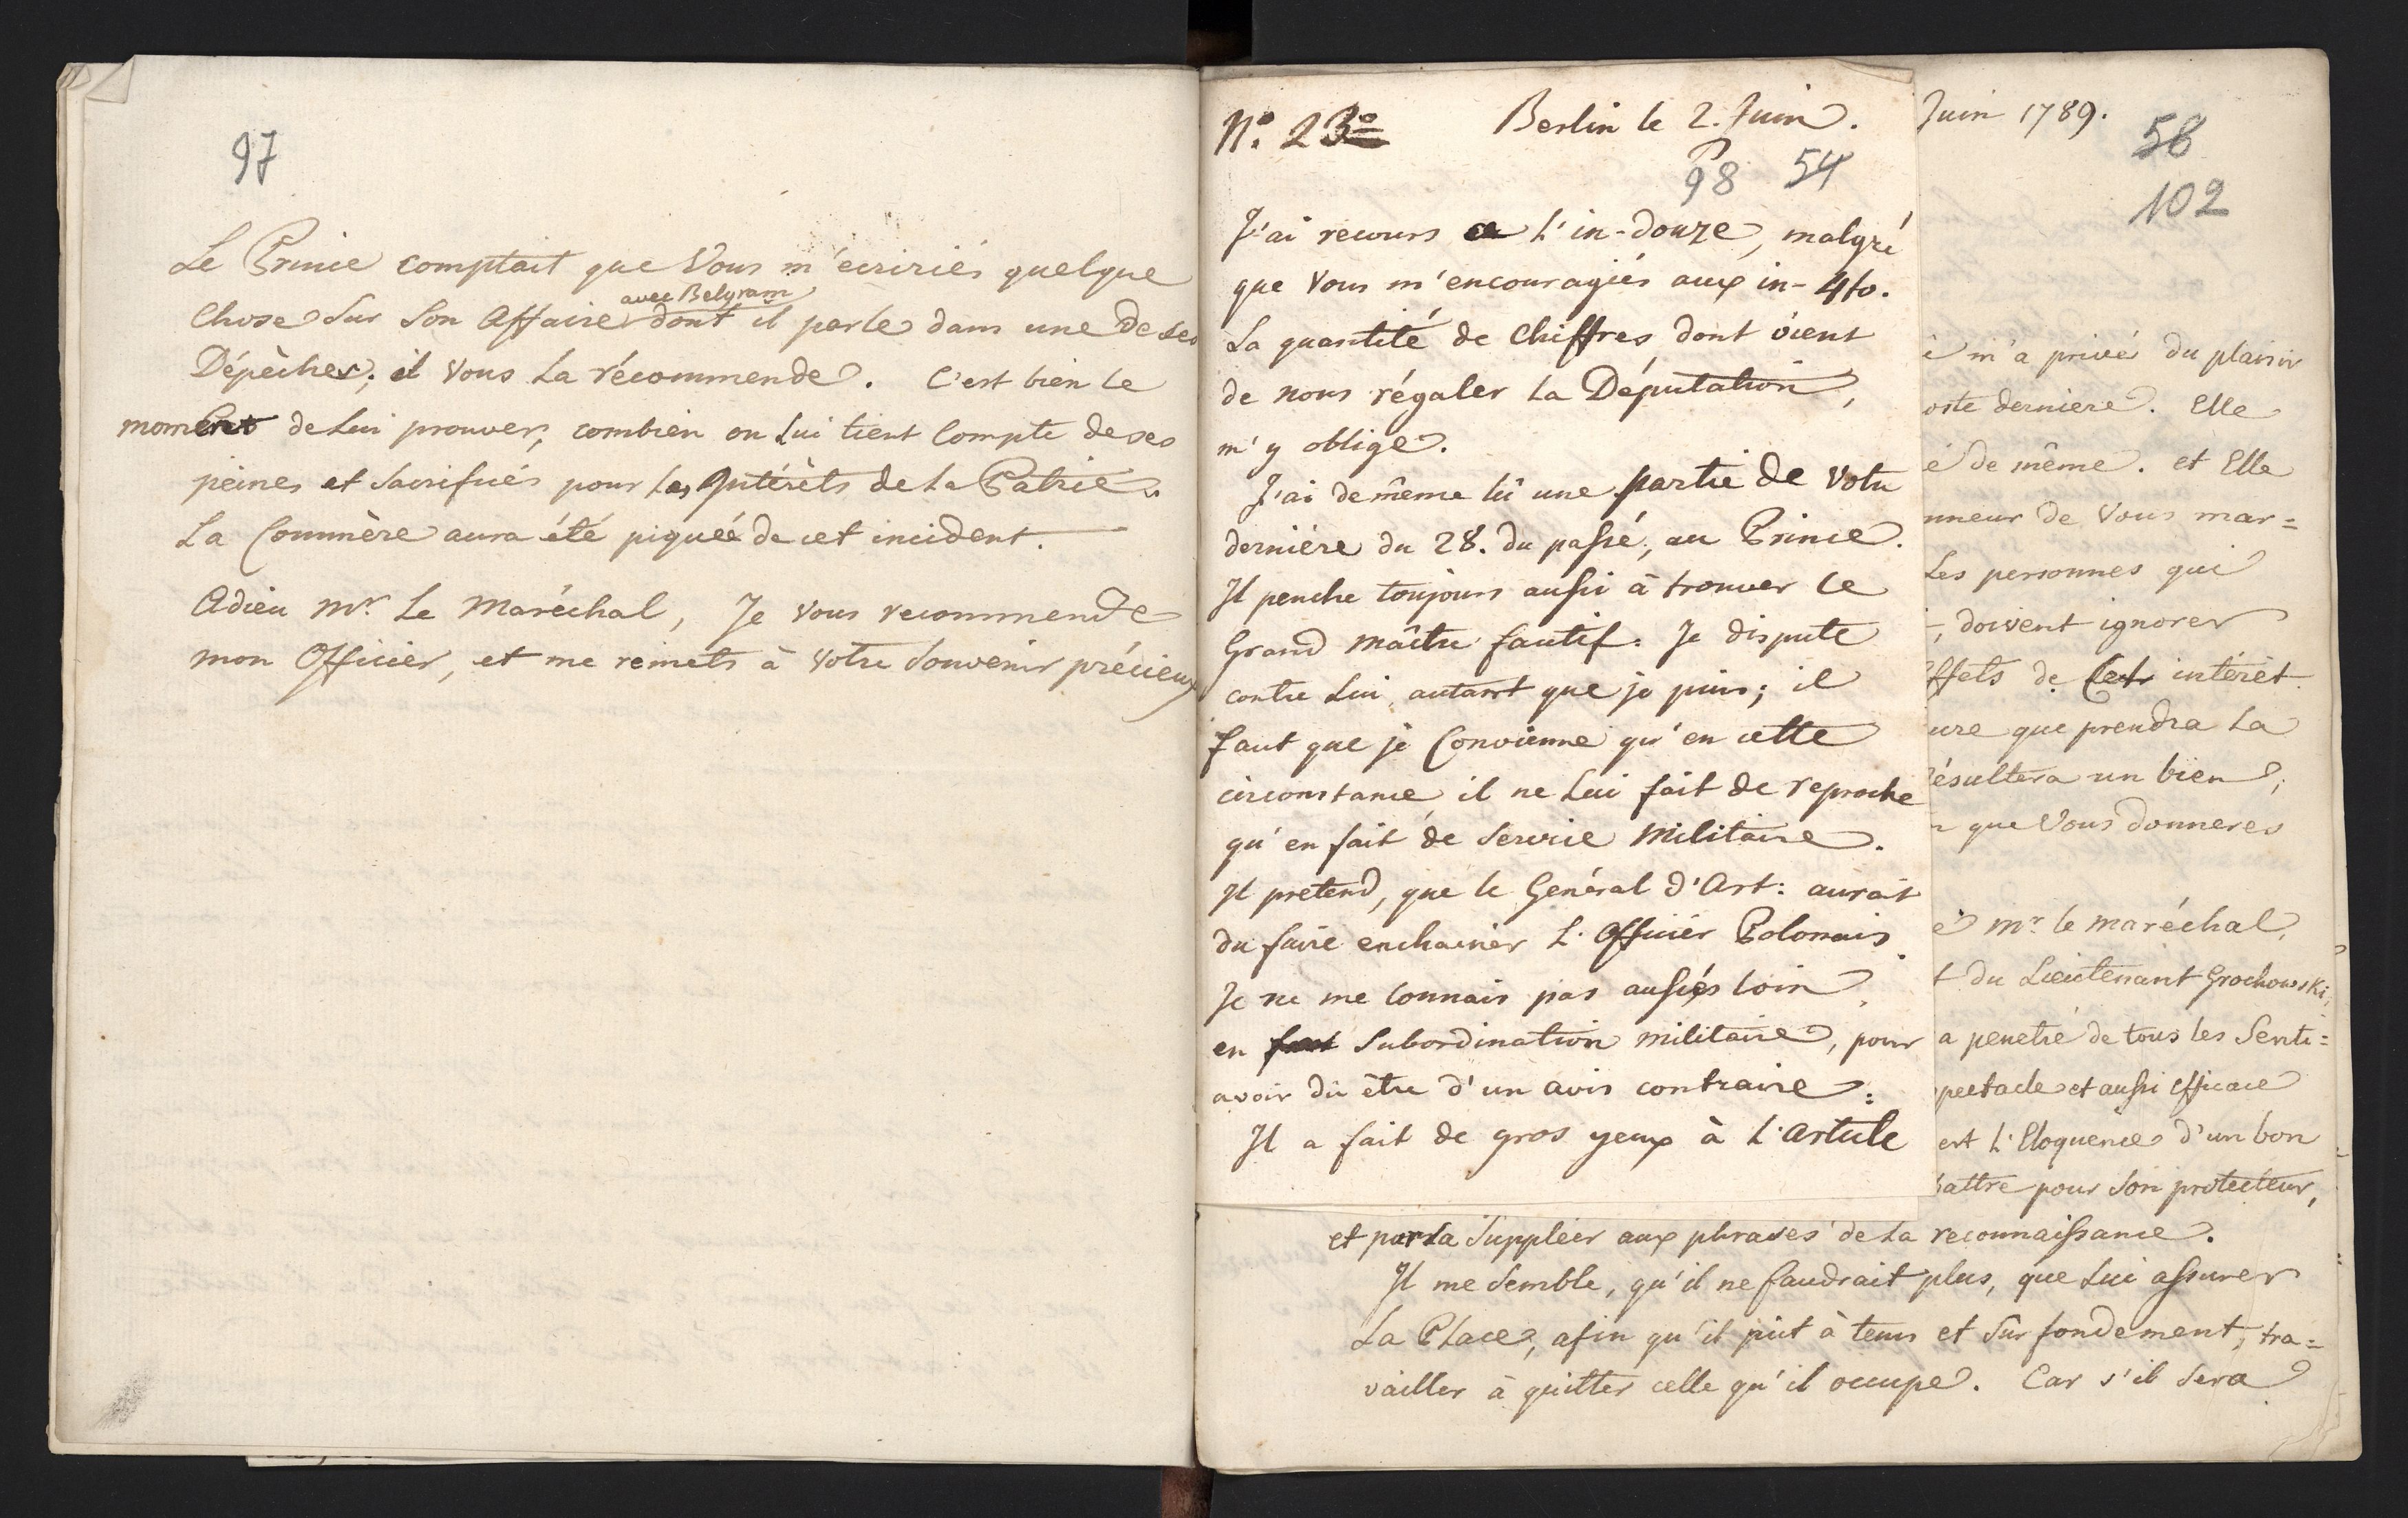 97
Le Prince comptait que Vous m'ecririés quelque
avec Belgram
Chose Sur Son Affaire dont il parle dans une de ses
Dépèches; il Vous la récommende. C'est bien le
moment de Lui prouver, combien on Lui tient Compte de ses
peines et Sacrifices pour les Intérèts de la Patrie.
La Commère aura été piquée de cet incident.
Adieu Mr. Le Maréchal, Je Vous recommende
mon Officier, et me remets à Votre Souvenir précieux
No. 23o Berlin le 2. Juin.
98 54
J'ai recours a L'in-douze, malgré
que Vous m'encouragiés aux in-4to.
La quantité de Chiffres dont vient
de nous régaler la Députation,
m'y oblige.
J'ai de même lû une partie de Votre
dernière du 28. du passé, au Prince.
Il penche toujours aussi à trouver le
Grand Maître fautif. Je dispute
contre Lui, autant que je puis; il
faut que je Convienne qu'en cette
circonstance il ne Lui fait de reproche
qu'en fait de Service Militaire.
Il pretend, que le Général d'Art: aurait
du faire enchainer L'Officier Polonais.
Je ne me connais pas assés loin
en Subordination militaire, pour
avoir dû être d'un avis contraire.
Il a fait de gros yeux à L'Article
Juin 1789.
58
102
m'a privés du plaisir
oste derniere. Elle
de même. et Elle
nneur de Vous mar=
Les personnes qui
, doivent ignorer
ffets de Cet intérèt.
ure que prendra La
ésultera un bien;
que Vous donneres
Mr. le Maréchal,
t du Lieutenant Grochowski,
a penetré de tous les Senti=
pectacle et aussi efficace
est L'Eloquence d'un bon
battre pour Son protecteur,
et par La Suppléer aux phrases de La reconnaissance.
Il me Semble, qu'il ne faudrait plus, que Lui assurer
La Place, afin qu'il pût à tems et Sûr fondement, tra=
vailler à quitter celle qu'il occupe. Car s'il Sera